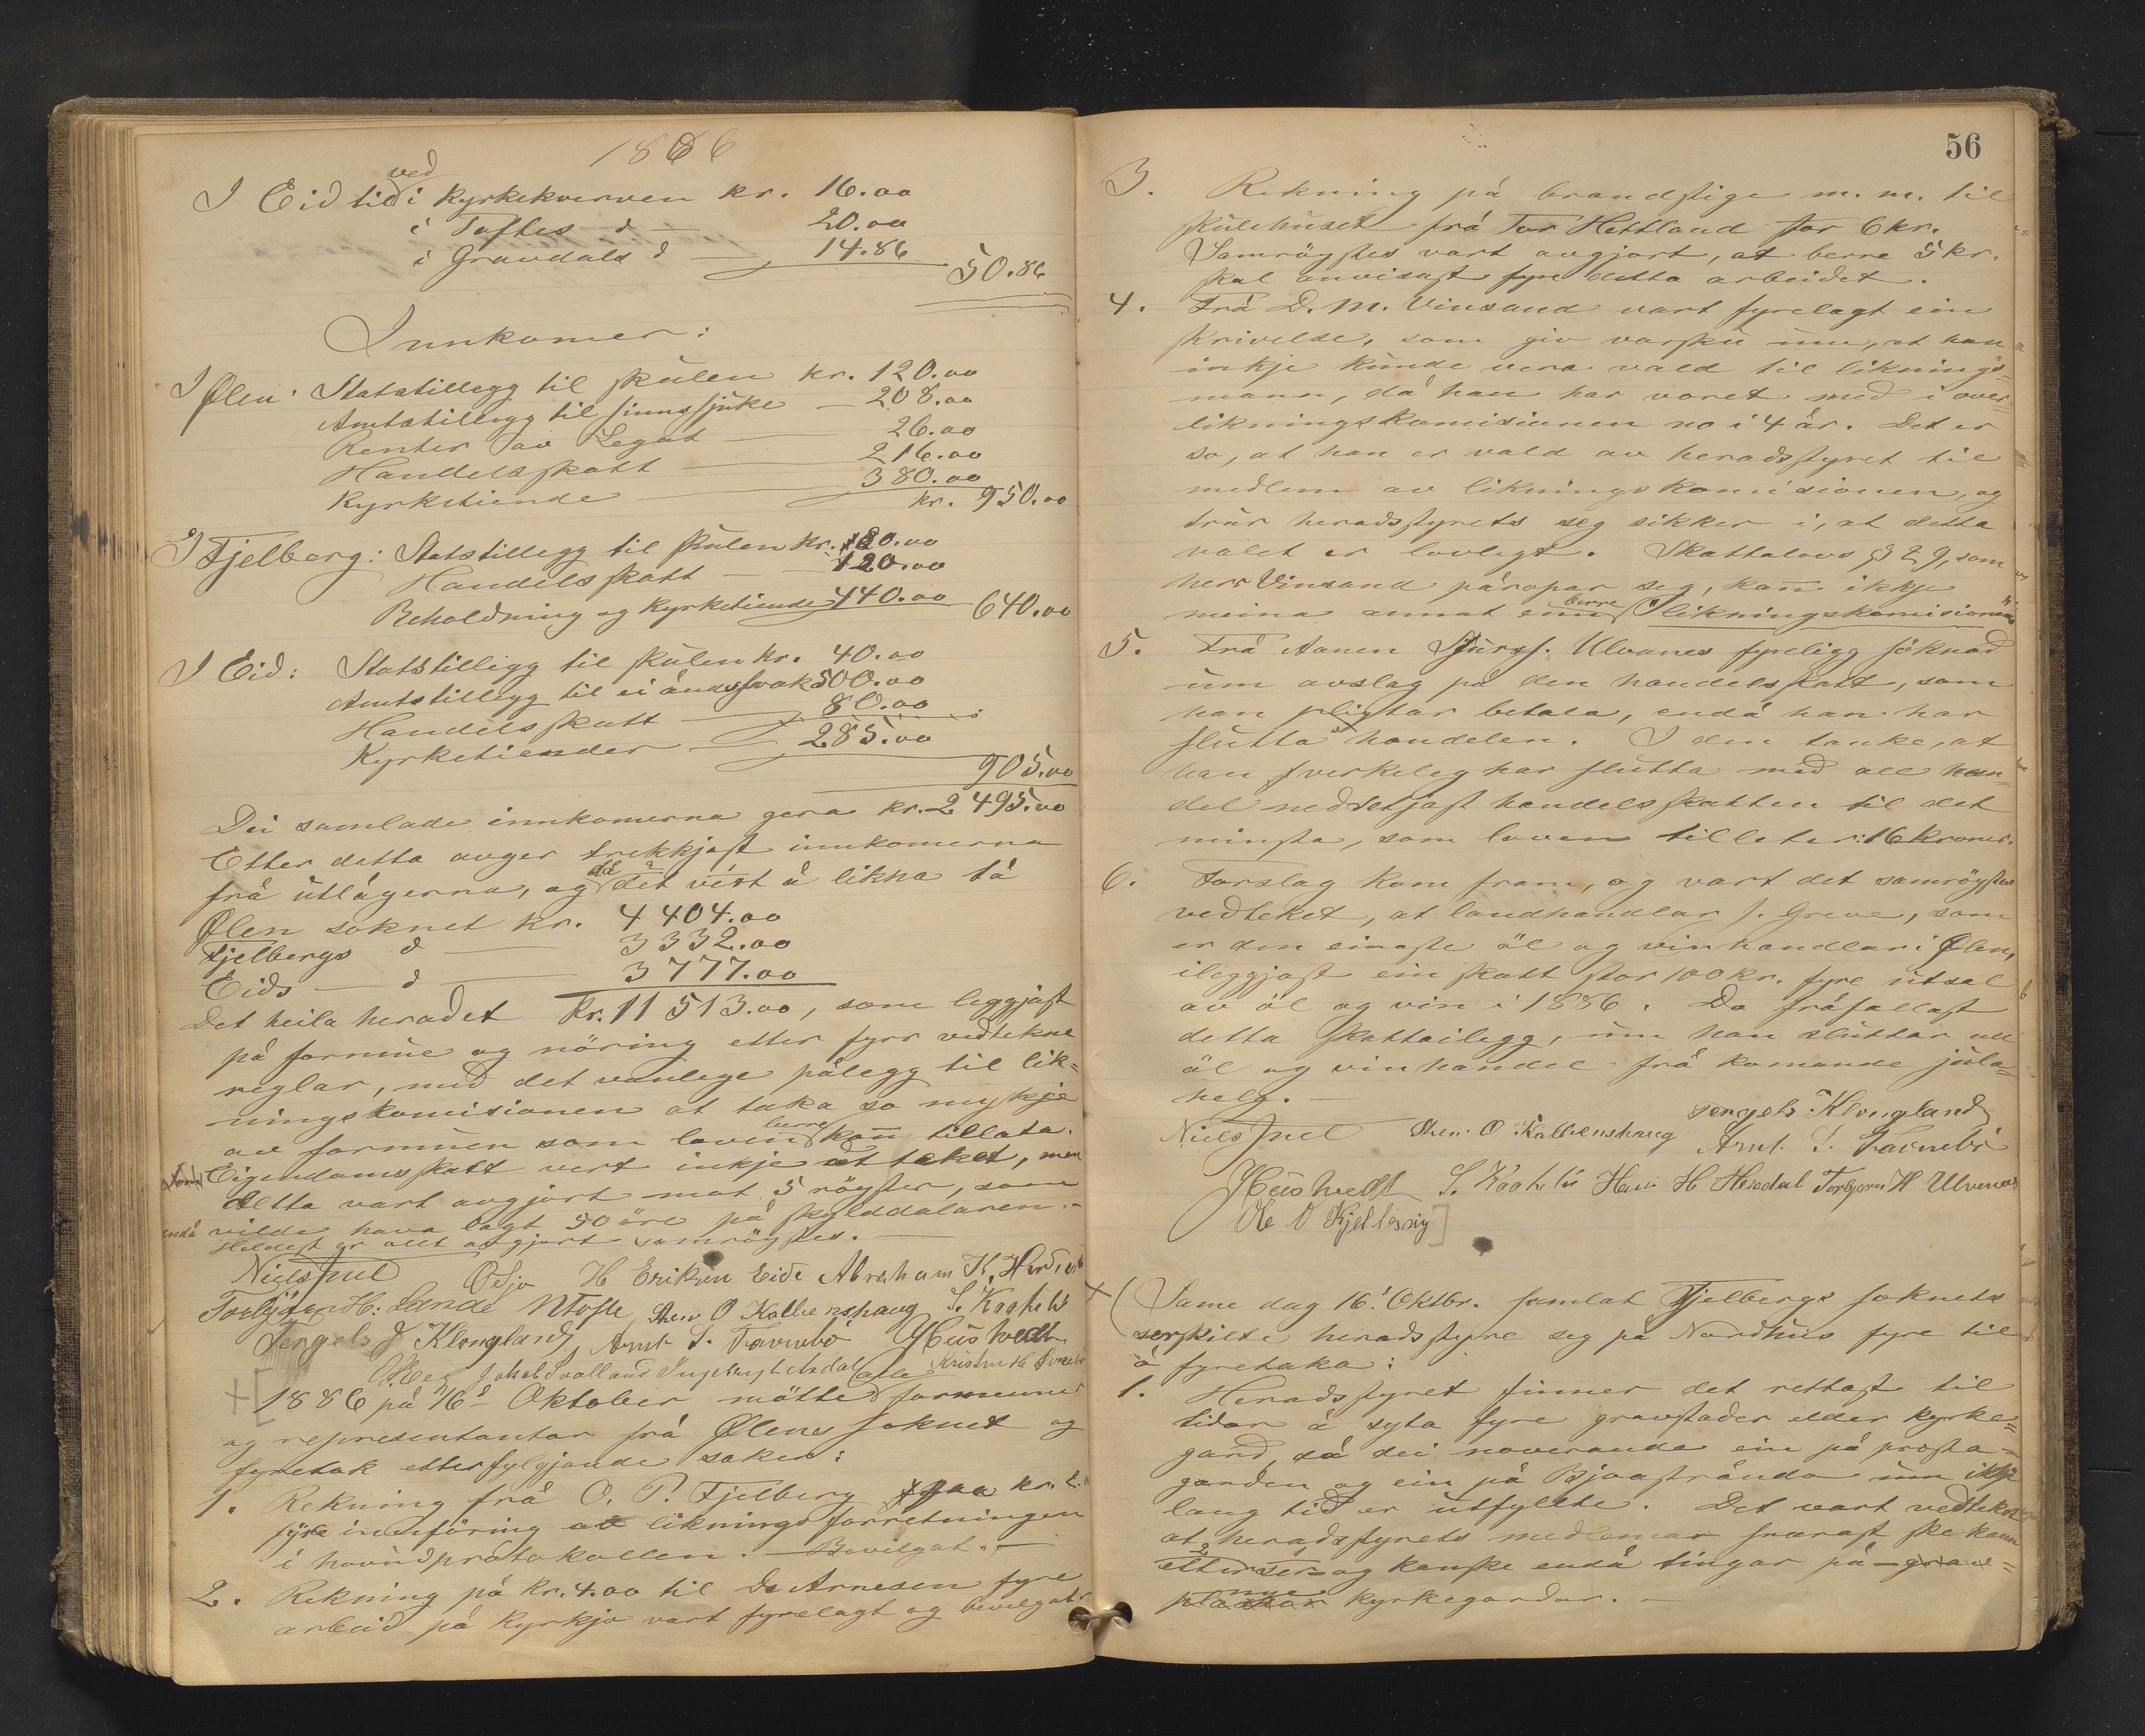 1886
I Eid til ved i Kyrkekverven kr. 16.00
i Toftes d — 20.00
i Gravdals d — 14.86
50.86
Innkomer:
I Ølen: Statstillegg til skulen kr. 120.00
Amtstillegg til sinnssjuke — 208.00
Renter av Legat — 26.00
Handelsskatt — 216.00
Kyrketiende — 380.00
kr. 950.00
I Fjelberg: Statstillegg til skulen kr. 80.00
Handelsskatt — 120.00
Beholdning og Kyrketiende 440.00 640.00
I Eid: Statstillegg til skulen kr. 40.00
Amtstillegg til ei åndssvak 500.00
Handelsskatt — 80.00
Kyrketiender — 285.00
905.00
Dei samlade innkomerna gera kr. 2 495.00
Etter detta avger trekkjast innkomerna
frå utlågerna, og då det vert å likna på
Ølen soknet kr. 4 404.00
Fjelbergs d — 3 332.00
Eids — d — 3 777.00
Det heila heradet Kr. 11 513.00, som leggjast
på formue og nöring etter fyrr vedtekne
reglar, med det vanlege pålegg til lik=
ningskomisionen at taka so mykje
av formuen som loven berre kann tillata.
Eigendomsskatt vert inkje uttaket, men
detta vart avgjort mot 5 röyster, som
endå vilde hava lagt 50 öre på skylddalaren.—
Heldest er allt avgjort samröystes.—
Niels Juel O Sjo H Eriksen Eide Abraham K.
Torbjörn H: Lande N Tofte Sten O Kalvenshaug
Tengels J Klongland Arnt S. Tavnebö
Jakob Svalland
1886 på 16d Oktober mötte formenner
og representantar frå Ølens soknet og
fyretok etterfylgjande saker:
1. Rekning frå O. P. Fjelberg paa kr. 2.
fyre innföring av likningsforretningen
i hovudprotokollen. — Bevilgat.—
2. Rekning på kr. 4.00 til Arnesen fyre
arbeid på Kyrkja vart fyrelagt og bevilgat.
56
3. Rekning på brandstige m. m. til
skulehuset frå Tor Hettland for 6 kr.
Samröystes vart avgjort, at berre 5 kr.
skal anvisast fyre detta arbeidet.
4. Frå D. M. Vinsand vart fyrelagt ein
skrivelse, som giv varsku um, at han
inkje kunde vera vald til liknings=
mann, då han har voret med i over=
likningskomisionen no i 4 år. Det er
so, at han er vald av heradsstyret til
medlem av likningskomisionen, og
trur heradsstyrets seg sikker i, at detta
valet er lovlegt. Skattelovs § 29, som
herr Vinsand påropar seg, kann ikkje
meina annat enn berre likningskomisionen
5. Frå Aanen Sjurss. Ulvanes fyreligg söknad
um avslag på den handelsskatt, som
han pligtar betala, endå han har
slutta handelen. I den tanke, at
han verkeleg har slutta med all han=
del nedsetjast handelsskatten til det
minsta, som loven tilleter: 16 kroner.
6. Forslag kom fram, og vart det samröystes
vedteket, at landhandlar J. Greve, som
er den einaste öl og vinhandlar i Ølen,
ileggjast ein skatt stor 100 kr. fyre utsal
av öl og vin i 1886. Da fråfallast
detta skatteilegg, um han sluttar all
öl og vinhandel frå komande jola=
helg.—
Tengels Klongland
Niels Juel Sten O Kalvenshaug Arnt S. Tavnebö
Torbjörn H Ulvenes
Ole O Kjellesvig
Same dag 16d Oktbr. samlat Fjelbergs soknets
serskilte heradsstyre seg på Nordhus fyre til
å fyretaka:
1. Heradsstyret finner det rettast til
tidar å syta fyre gravstader elder kyrke=
gard, då dei noverande ein på prosta=
garden og ein på Bjoastranda um ikkje
lang tid er utfyllte. Det vart vedteket
at heradsstyrets medlemar snarast ska kom
ettersér og kanske endå tingar på grav=
plassar nye kyrkegardar.—